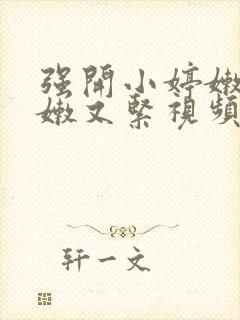 强開小婷嫩
嫩又緊視頻
轩一文